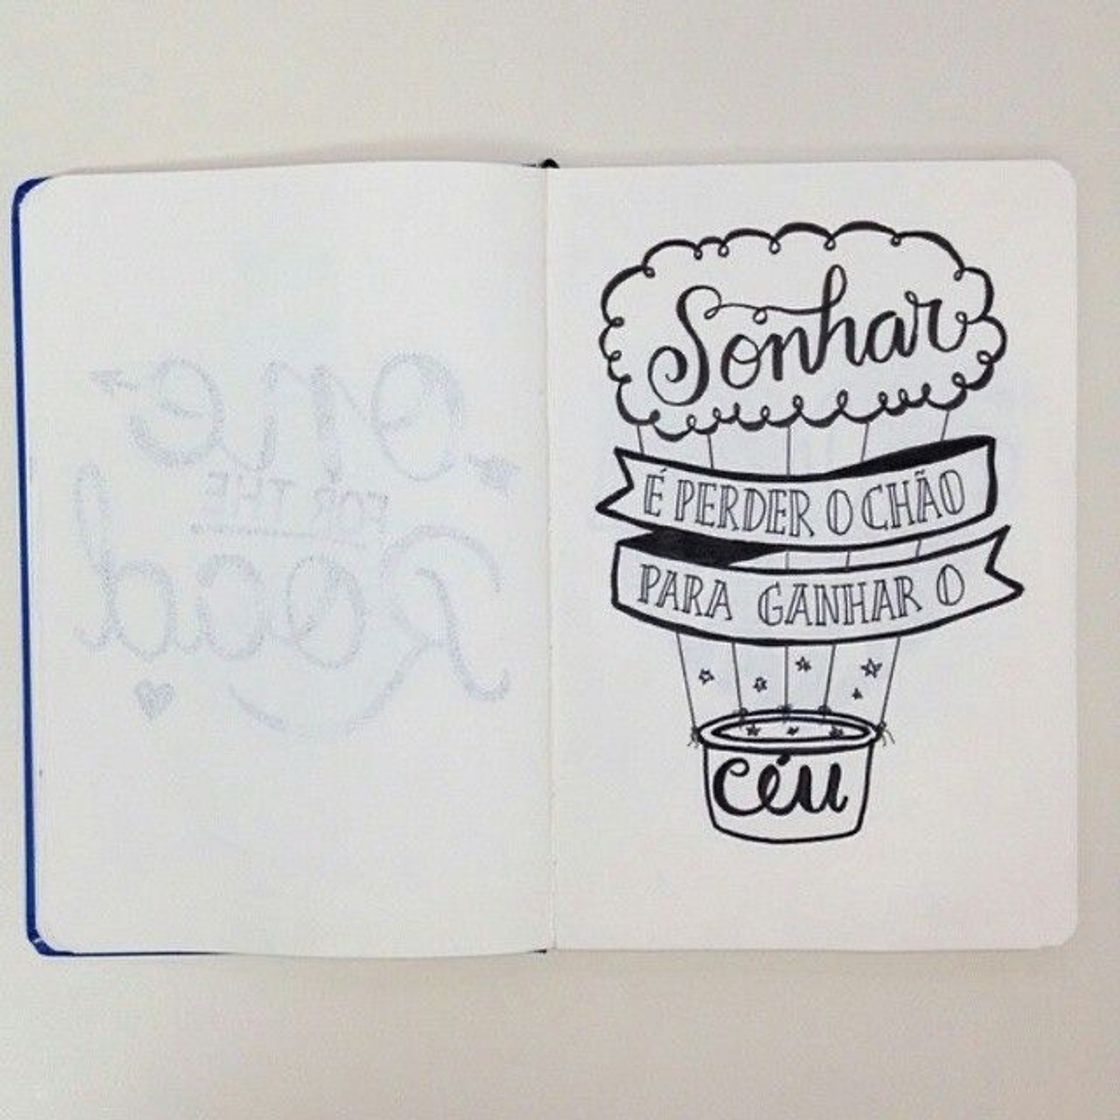 one
FOR THE
Road
Sonhar
É PERDER O CHÃO
PARA GANHAR O
céu